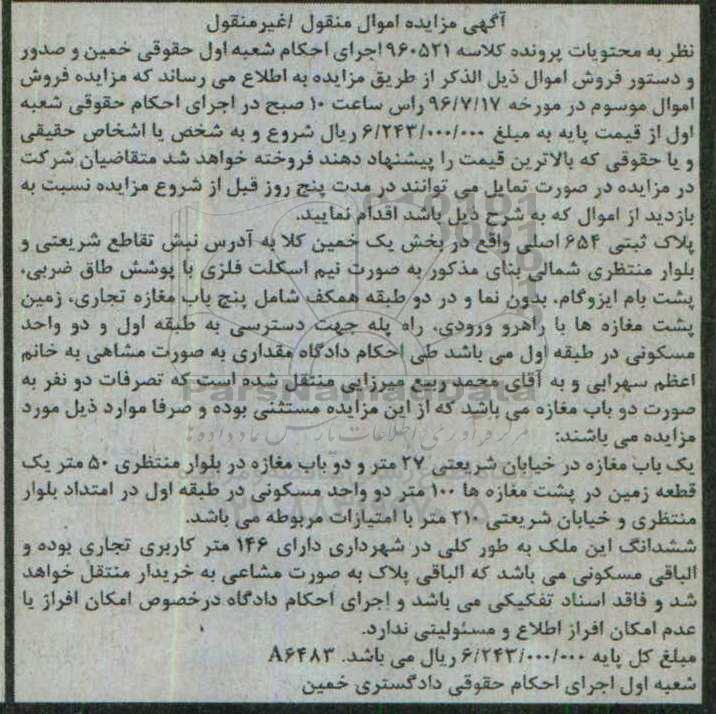 آگهی مزایده اموال منقول /غیرمنقول
نظر به محتویات پرونده کلاسه ۹۶۰۵۲۱ اجرای احکام شعبه اول حقوقی خمین و صدور
و دستور فروش اموال ذیل الذکر از طریق مزایده به اطلاع می رساند که مزایده فروش
اموال موسوم در مورخه ۹۶/۷/۱۷ راس ساعت ۱۰ صبح در اجرای احکام حقوقی شعبه
اول از قیمت پایه به مبلغ ۶/۲۴۳/۰۰۰/۰۰۰ ریال شروع و به شخص یا اشخاص حقیقی
و یا حقوقی که بالاترین قیمت را پیشنهاد دهند فروخته خواهد شد متقاضیان شرکت
در مزایده در صورت تمایل می توانند در مدت پنج روز قبل از شروع مزایده نسبت به
بازدید از اموال که به شرح ذیل باشد اقدام نمایید.
پلاک ثبتی ۶۵۴ اصلی واقع در بخش یک خمین کلا به آدرس نبش تقاطع شریعتی و
بلوار منتظری شمالی بنای مذکور به صورت نیم اسکلت فلزی با پوشش طاق ضربی،
پشت بام ایزوگام، بدون نما و در دو طبقه همکف شامل پنج باب مغازه تجاری، زمین
پشت مغازه ها با راهرو ورودی، راه پله جهت دسترسی به طبقه اول و دو واحد
مسکونی در طبقه اول می باشد طی احکام دادگاه مقداری به صورت مشاهی به خانم
اعظم سهرابی و به آقای محمد ربیع میرزایی منتقل شده است که تصرفات دو نفر به
صورت دو باب مغازه می باشد که از این مزایده مستثنی بوده و صرفا موارد ذیل مورد
مزایده می باشند:
یک باب مغازه در خیابان شریعتی ۲۷ متر و دو باب مغازه در بلوار منتظری ۵۰ متر یک
قطعه زمین در پشت مغازه ها ۱۰۰ متر دو واحد مسکونی در طبقه اول در امتداد بلوار
منتظری و خیابان شریعتی ۲۱۰ متر با امتیازات مربوطه می باشد.
ششدانگ این ملک به طور کلی در شهرداری دارای ۱۴۶ متر کاربری تجاری بوده و
الباقی مسکونی می باشد که الباقی پلاک به صورت مشاعی به خریدار منتقل خواهد
شد و فاقد اسناد تفکیکی می باشد و اجرای احکام دادگاه درخصوص امکان افراز یا
عدم امکان افراز اطلاع و مسئولیتی ندارد.
مبلغ کل پایه ۶/۲۴۳/۰۰۰/۰۰۰ ریال می باشد. A۶۴۸۳
شعبه اول اجرای احکام حقوقی دادگستری خمین
ParsNamadData
مرکز فرآوری اطلاعات پارس نماد داده ها